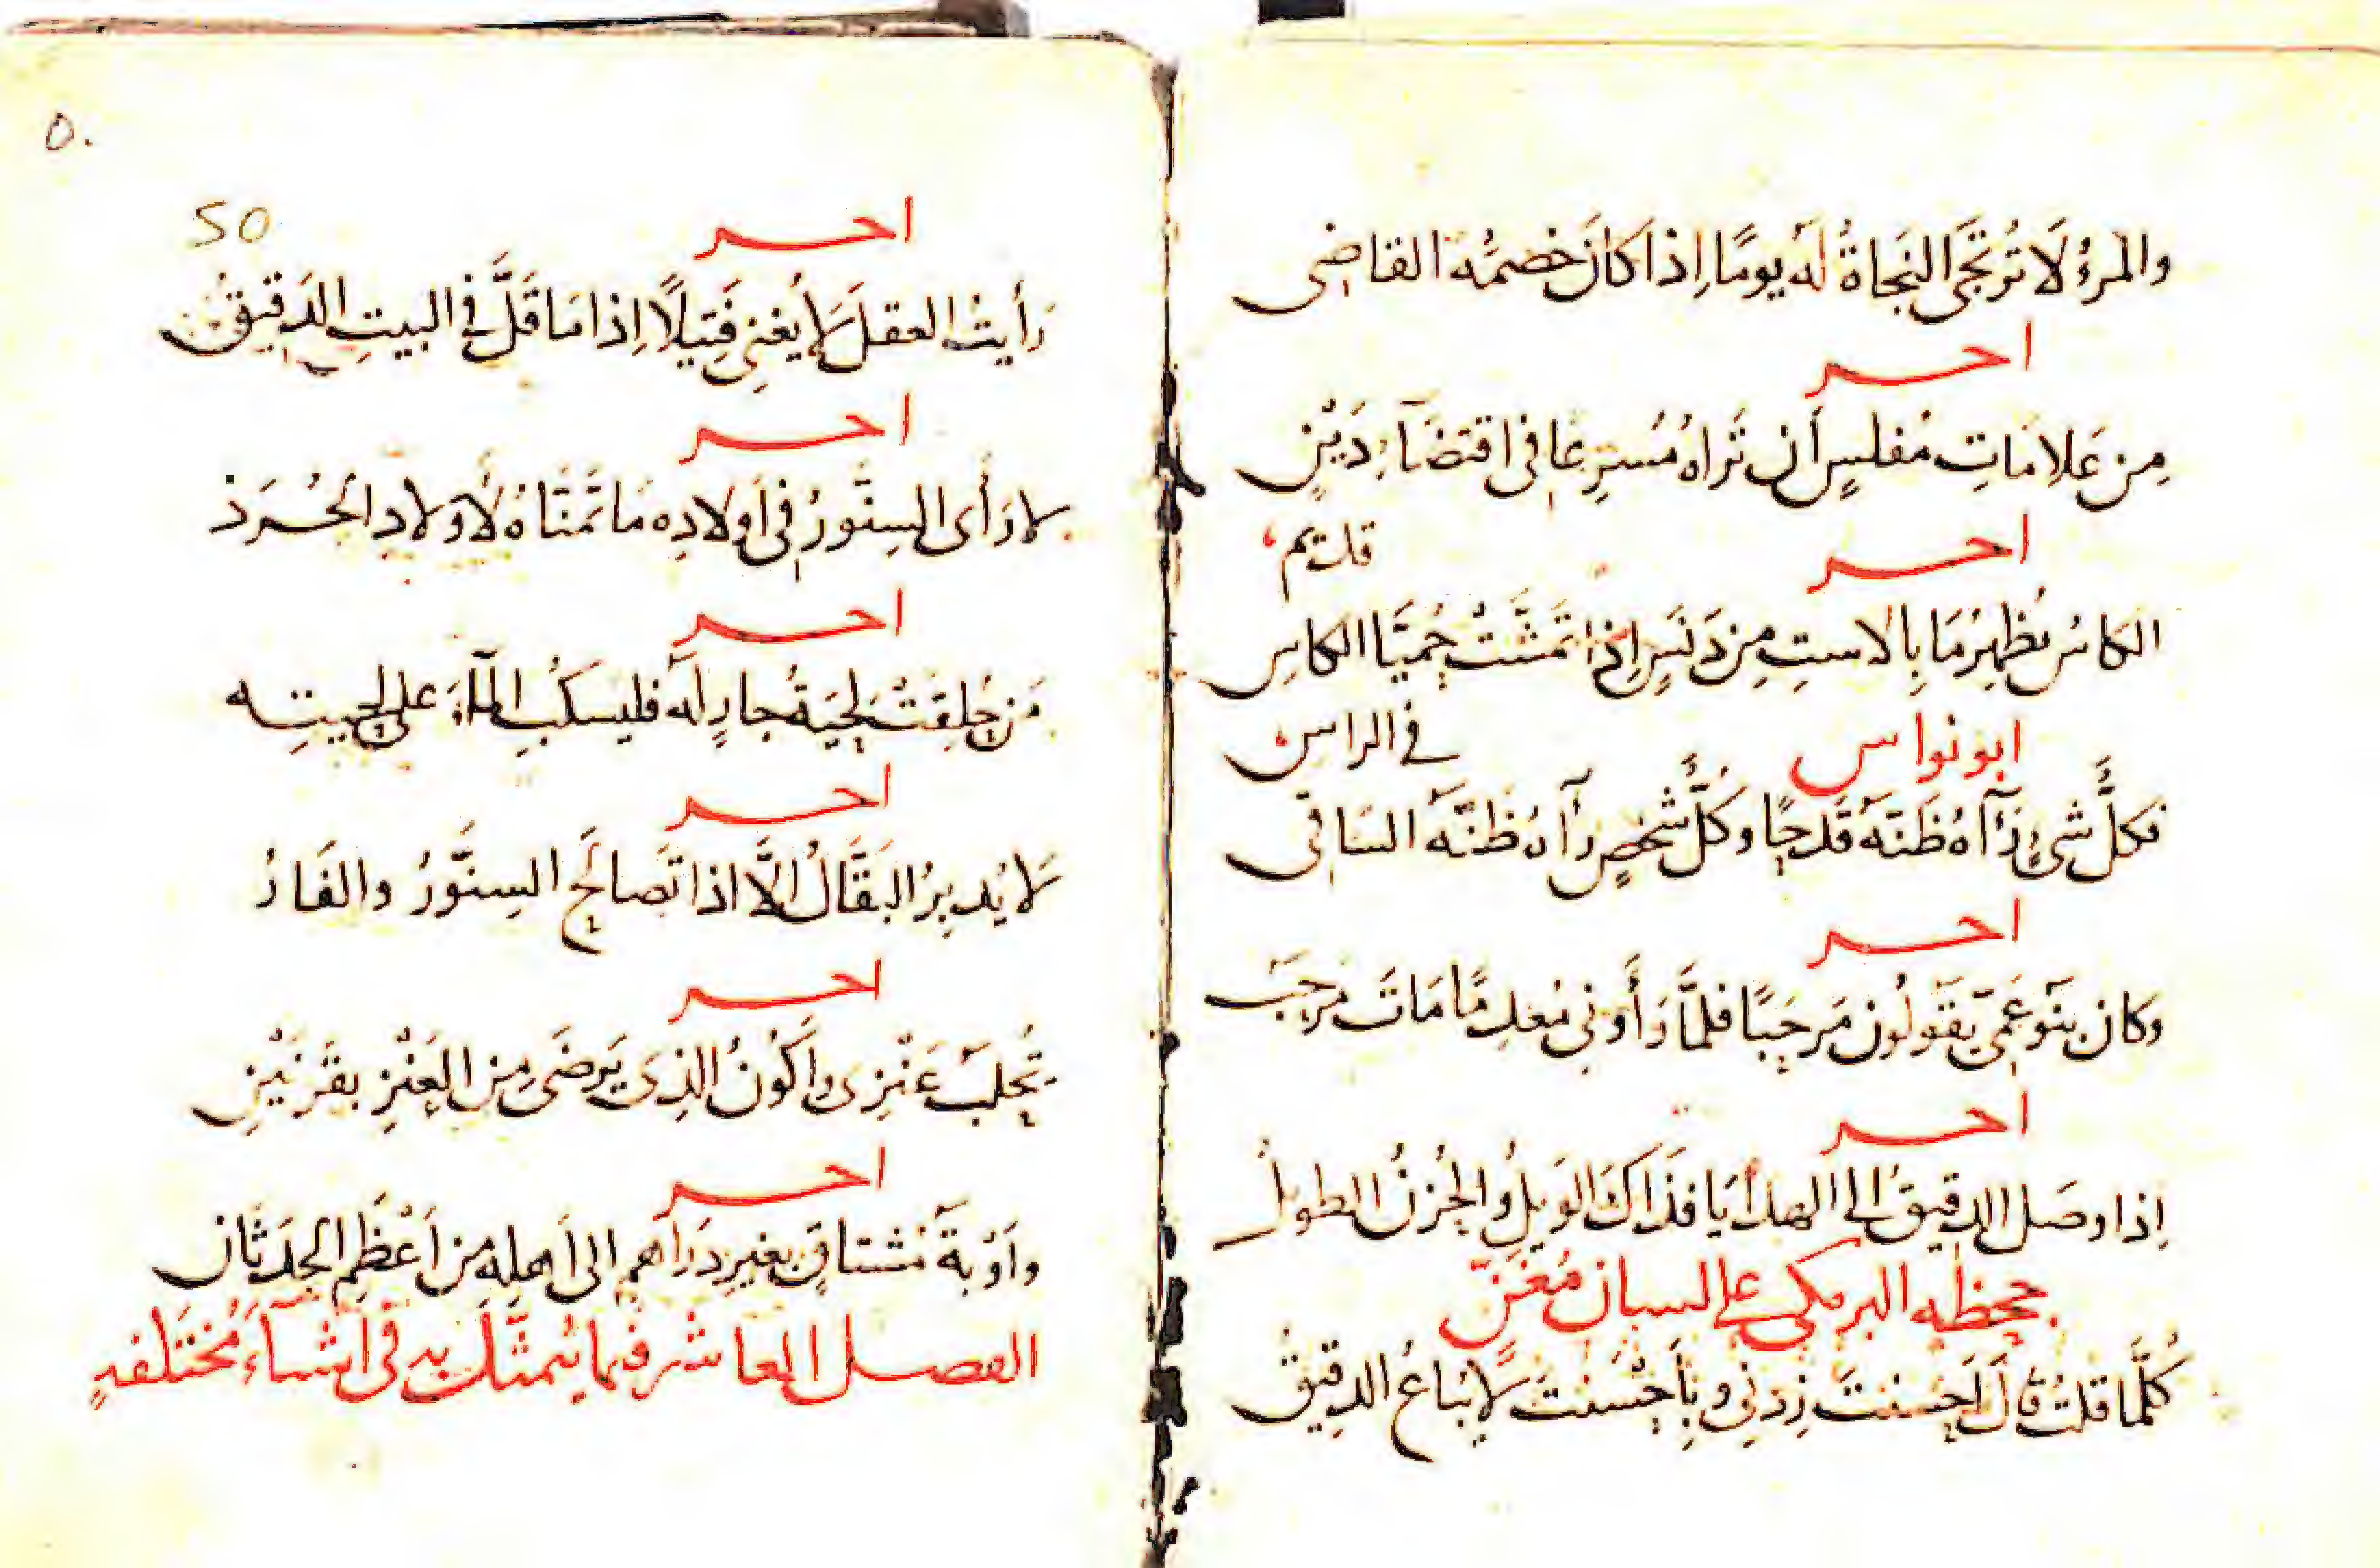 والمرءُ لَا تُرتَجَى النَجَاةُ لَه يومًا اِذا كانَ خصمُه القاضِى
اخر
مِن عَلامَاتِ مُفلسٍ أن تَراهُ مُسرِعًا فى اقتضَآءِ دَيْنٍ
اخر
قديم
الكاسُ يُظهِرُ مَا بِالاستِ مِن دَنَسٍ اِذا تَمَشَّتْ حُمَيَّا الكاسِ
فى الراس
ابو نواس
فكلُّ شىءٍ رَآهُ ظَنَّهُ قَدحًا وكلُّ شخصٍ رآهُ ظنَّهُ السَاقى
اخر
وكان بنَو عَمىّ يَقَولُون مَرحَبًا فلمَّا رَأَونى مُعدِمًا مَاتَ مَرحَبُ
اخر
اِذا وصَل الدقيقُ الى الهدَايَا فذَاكَ الوَيلُ والحُزنُ الطويلُ
جحظه البرمكى على لسان مُغَنّ
كُلَّما قلتُ قالَ اَحسنتَ زِدنِى وبأَحْسَنتَ لَا يُبَاعُ الدقِيقُ
٥٠
50
اخر
رَأيتُ العقلَ لَا يُغنِى فَتيلًا اِذا مَا قَلَّ فى البيتِ الدَقيقُ
اخر
لا رَأَى السِنَّورُ فى أَولادِه مَا تَمَنَّاهُ لأَولادِ الجُرَذ
اخر
مَن حُلِقَتْ لِحيَةُ جارٍ لَه فليَسكُبِ المآءَ على لحيتِه
اخر
لَا يُدبِرُ البَقَّالُ اِلَّا اذا تَصالَحَ السِنَّورُ والفَارُ
اخر
تُحلَبُ عَنْزِى واَكُونُ الذِى يَرضَى مِن العَنْزِ بقَرنَيْنِ
اخر
واَوْبةُ مُشتاقٍ بغيرِ دَراهمٍ الى اَهلِهِ مِن اَعْظَمِ الحِدَثَانِ
الفصل العاشر فيما يُتمثَّل به فى اَشيآءَ مُختَلفةٍ